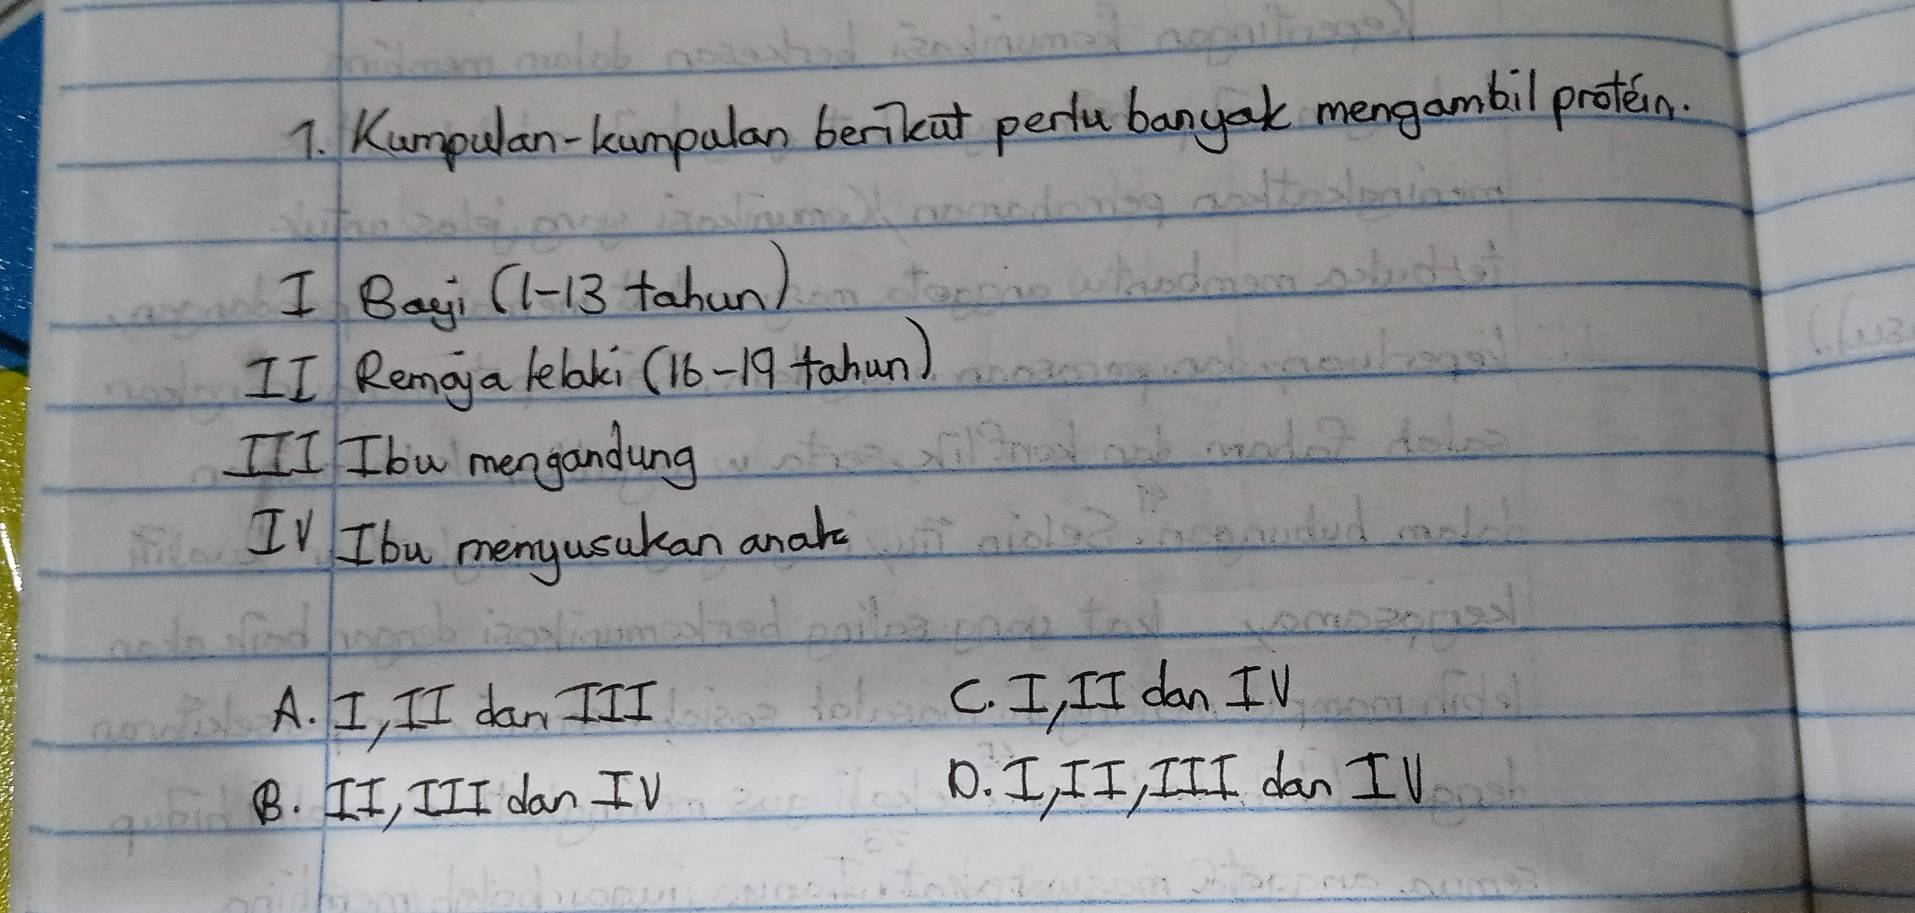 1. Kumpulan-kumpulan berikut perlu banyak mengambil protein.
I Bayi (1-13 tahun)
II Remaja lelaki (16-19 tahun)
III Ibu mengandung
IV Ibu menyusukan anak
A. I, II dan III
C. I, II dan IV
B. II, III dan IV
D. I, II, III dan IV